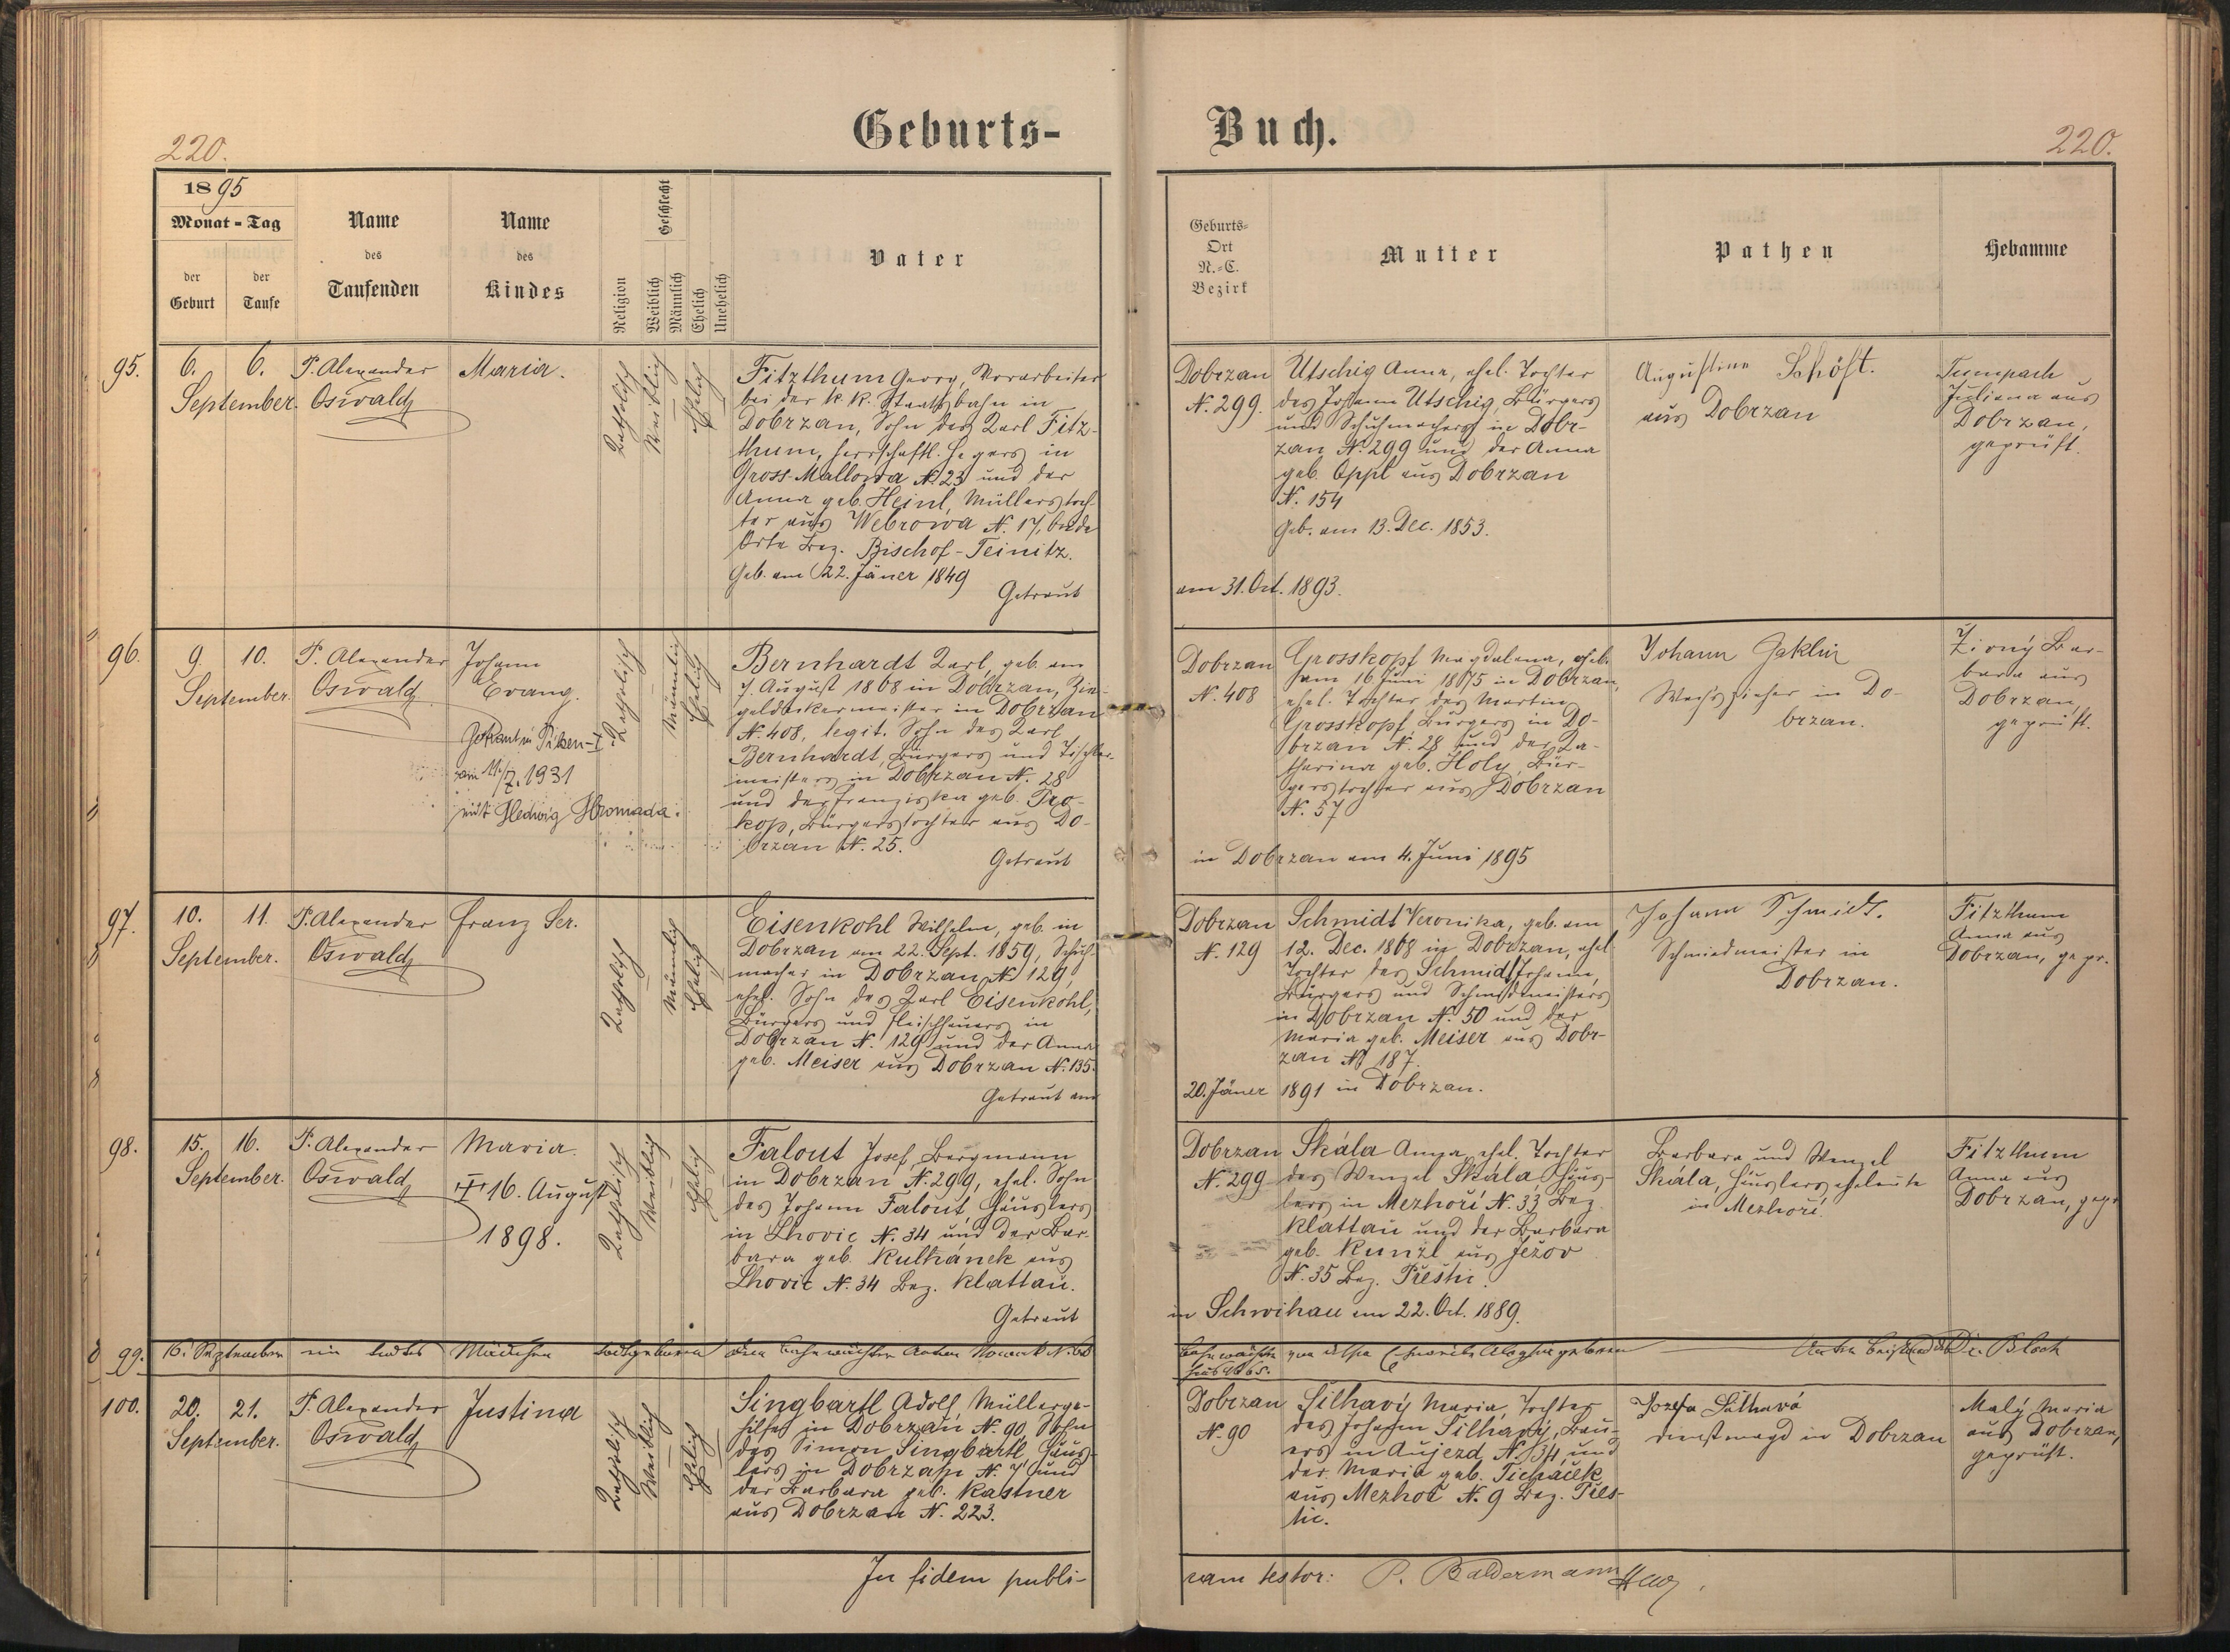 220.
Geburts-
Buch.
220.
1895
Monat - Tag
der Geburt
der Taufe
Name des Taufenden
Name des Kindes
Religion
Geschlecht
Weiblich
Männlich
Ehelich
Unehelich
Vater
Geburts-
Ort
N.-C.
Bezirk
Mutter
Pathen
Hebamme
95.
6. 6.
September.
P. Alexander
Oswald
Maria.
Katholisch
Weiblich
Ehelich
Fitzthum Georg, Vorarbeiter
bei der k. k. Staatsbahn in
Dobrzan, Sohn des Karl Fitz-
thum, herrschaftl. Hegers in
Gross-Mallowa N. 23 und der
Anna geb. Heinl, Müllerstoch-
ter aus Webrowa N. 17, beide
Orte Bez. Bischof-Teinitz.
Geb. am 22. Jäner 1849
Getraut
Dobrzan
N. 299.
Utschig Anna, ehel. Tochter
des Johann Utschig, Bürgers
und Schuhmachers in Dobr-
zan N. 299 und der Anna
geb. Oppl aus Dobrzan
N. 154
Geb. am 13. Dec. 1853.
am 31. Oct. 1893.
Augustine Schöft.
aus Dobrzan
Juliana aus
Dobrzan,
geprüft.
96.
9. 10.
September.
P. Alexander
Oswald
Johann
Evang.
Getraut in Pilsen
am 11./7. 1931
mit Hedwig Hromada.
Katholisch
Männlich
Ehelich
Bernhardt Karl, geb. am
7. August 1868 in Dobrzan,
in Dobrzan
N. 408, legit. Sohn des Karl
Bernhardt, Bürgers und Tischler-
meisters in Dobrzan N. 28
und der Franziska geb. Pro-
kop, Bürgerstochter aus Do-
brzan N. 25.
Getraut
Dobrzan
N. 408
Grosskopf Magdalena, geb.
am 16 Juni 1875 in Dobrzan,
ehel. Tochter des Martin
Grosskopf, Bürgers in Do-
brzan N. 28 und der Ka-
tharina geb. Holy, Bür-
gerstochter aus Dobrzan
N. 57
in Dobrzan am 4. Juni 1895
Johann
Wachszieher in Do-
brzan.
Živný Bar-
bara aus
Dobrzan,
geprüft.
97.
10. 11.
September.
P. Alexander
Oswald
Franz Ser.
Katholisch
Männlich
Ehelich
Eisenkohl Wilhelm, geb. in
Dobrzan am 22. Sept. 1859, Schuh-
macher in Dobrzan N. 129,
ehel. Sohn des Karl Eisenkohl,
Bürgers und Fleischhauers in
Dobrzan N. 129 und der Anna
geb. Meiser aus Dobrzan N. 135.
Getraut am
Dobrzan
N. 129
Schmidt Veronika, geb. am
12. Dec. 1868 in Dobrzan, ehel
Tochter des Schmidt Johann,
Bürgers und Schmiedmeisters
in Dobrzan N. 50 und der
Maria geb. Meiser aus Dobr-
zan N. 187.
20. Jäner 1891 in Dobrzan.
Johann Schmidt.
Schmiedmeister in
Dobrzan.
Fitzthum
Anna aus
Dobrzan, gepr.
98.
15. 16.
September.
P. Alexander
Oswald
Maria.
† 16. August
1898.
Katholisch
Weiblich
Ehelich
Falout Josef, Bergmann
in Dobrzan N. 299, ehel. Sohn
des Johann Falout, Häuslers
in Lhovic N. 34 und der Bar-
bara geb. Kulhánek aus
Lhovic N. 34 Bez. Klattau.
Getraut
Dobrzan
N. 299
Skála Anna, ehel. Tochter
des Wenzel Skála, Häus-
lers in Mezhoří N. 33 Bez.
Klattau und der Barbara
geb. Kunzl aus Ježov
N. 35 Bez. Přeštic.
in Schwihau am 22. Oct. 1889.
Barbara und Wenzel
Skála, Häuslerseheleute
in Mezhoří.
Fitzthum
Anna aus
Dobrzan, gepr
99.
16. September ein todtes Mädchen todtgeboren
Dr. Bloch
100.
20. 21.
September.
P. Alexander
Oswald
Justina
Katholisch
Weiblich
Ehelich
Singbartl Adolf, Müllerge-
hilfe in Dobrzan N. 90, Sohn
des Simon Singbartl, Häus-
lers in Dobrzan N. 7 und
der Barbara geb. Kastner
aus Dobrzan N. 223.
Dobrzan
N. 90
Silhavý Maria, Tochter
des Johann Silhavý, Bau-
ers in Aujezd N. 34, und
der Maria geb. Tichaček
aus Mezhoř N. 9 Bez. Přeš-
tic.
Josefa Silhavá
Dienstmagd in Dobrzan
Malý Maria
aus Dobrzan,
geprüft.
In fidem publi-
cam testor: P. Baldermann